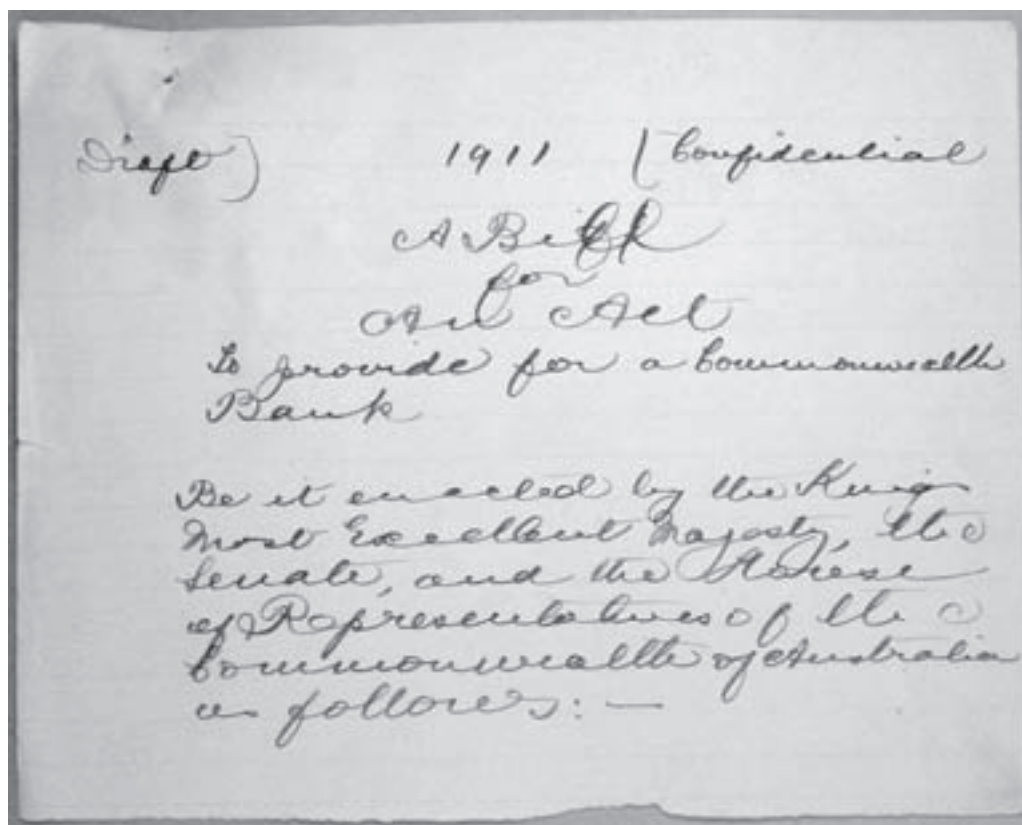 Draft) 1911 (Confidential
A Bill
for
An Act
to provide for a Commonwealth
Bank
Be it enacted by the King
Most Excellent Majesty, the
Senate, and the House
of Representatives of the
Commonwealth of Australia
as follows: —